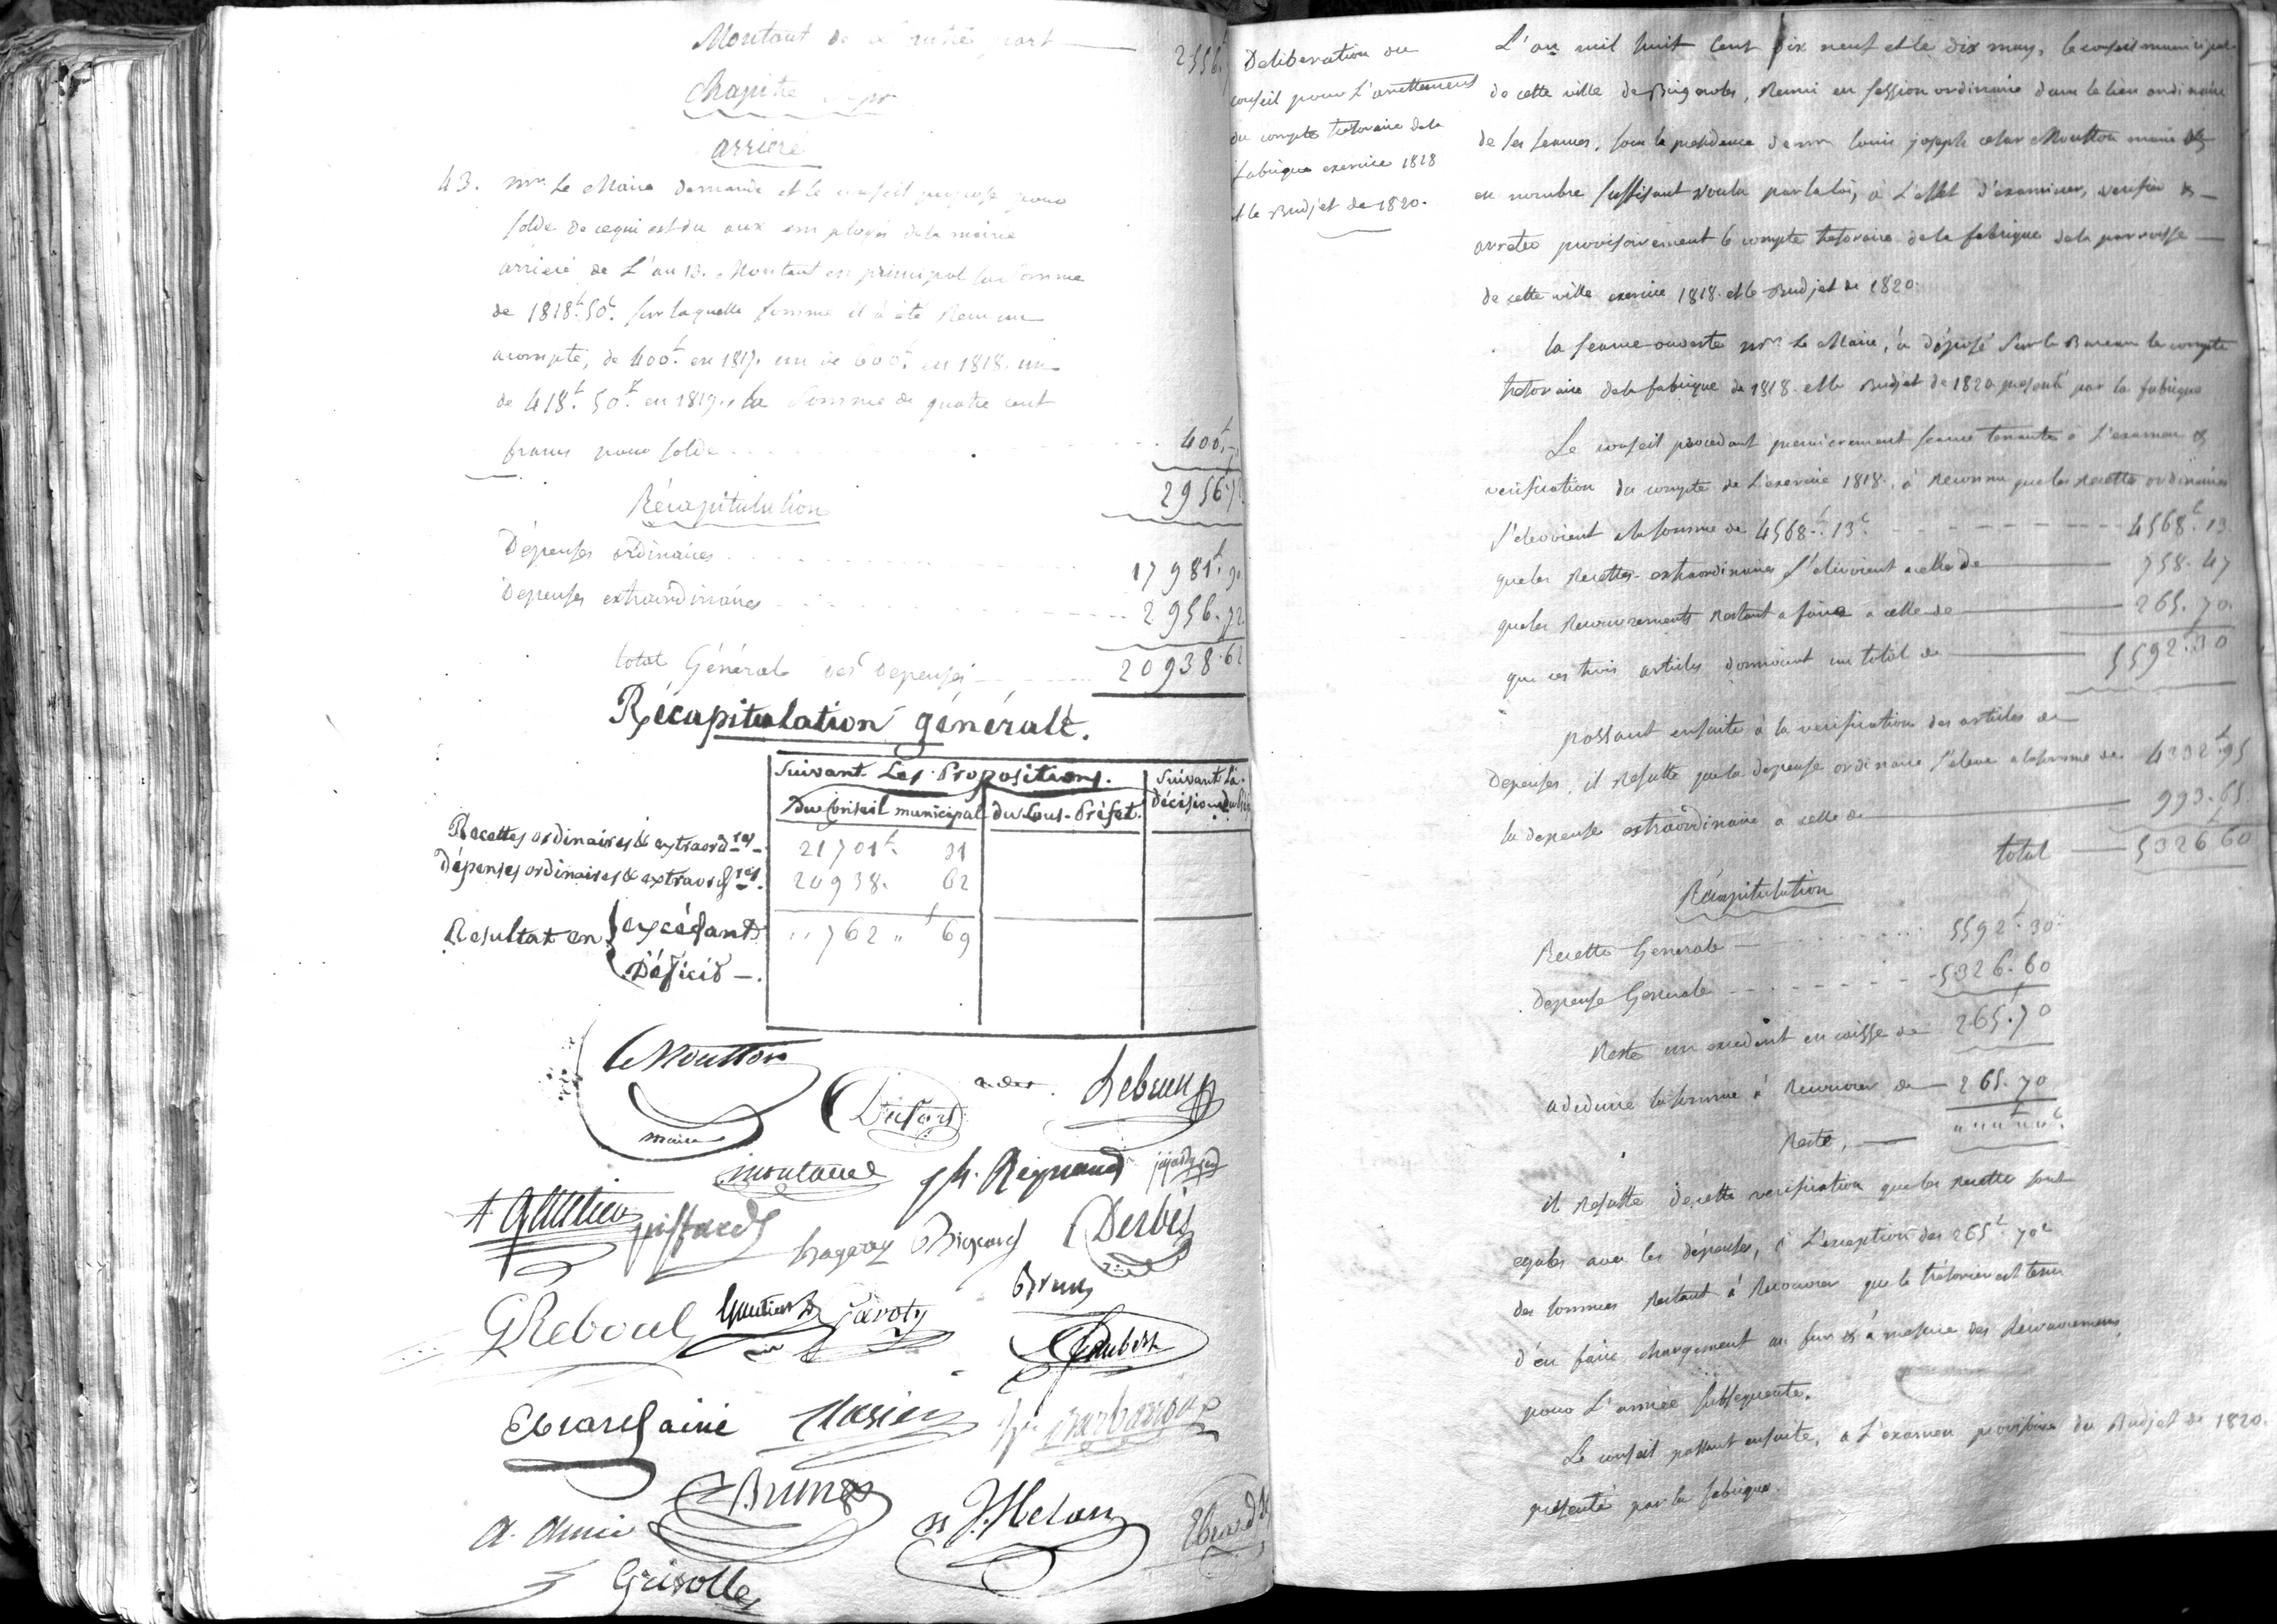 Montant de l'autre part 2556.
Chapitre
arriéré
43. Mr. Le Maire demande et le conseil propose pour
solde de ce qui est du aux employés de la mairie
arriéré de L'an 13. Montant en principal la somme
de 1818f. 50c. sur laquelle somme il à été Reçu un
acompte, de 400f. en 1817. un de 600f. en 1818. un
de 418f. 50c. en 1819. la Somme de quatre cent
francs pour solde 400f.
2956.72
Récapitulation
Dépenses ordinaires 17981f.90
Dépenses extraordinaires 2956.72
total Général des depenses 20938.62
Récapitulation générale.
Suivant Les Propositions. Suivant La
Du Conseil municipal du Sous-Préfet. décision du
Recettes ordinaires & extraordres 21701f. 31
Dépenses ordinaires & extraordres. 20938. 62
Resultat en excédant 762 " 69
Déficit
Le Moutton
maire
Lebrun
montaud ph. Reynaud
A gautier piffard Bremond Derbes
Brun
G Reboul Gautier Savoty
Jaubert
Ebrard ainé Masien Barbaroux
Brunes
a. amic J. Melan Ebrard
Grisolle
Deliberation du
conseil pour L'arrettement
du compte tresoraire de la
fabrique exercice 1818
et le Budjet de 1820.
L'an mil huit cent dix neuf et le dix may, le conseil municipal
de cette ville de Brignoles, Reuni en session ordinaire dans le lieu ordinaire
de ses seances, sous la presidence de mr louis joseph cesar Moutton maire &
en nombre suffisant voulu par la loi, à L'effet d'examiner, verifier &
arreter provisoirement le compte tresoraire de la fabrique de la parroisse
de cette ville exercice 1818. et le Budjet de 1820.
la seance ouverte mr. Le Maire, à déposé sur le Bureau le compte
tresoraire de la fabrique de 1818. et le Budjet de 1820 presenté par la fabrique
Le conseil procedant premierement seance tenante à L'examen &
verification du compte de L'exercice 1818., à Reconnu que les Recettes ordinaires
s'elevoient a la somme de 4568f. 13c. 4568f. 13
que les Recettes extraordinaires s'elevoient a celle de 758. 47
que les Recouvrements Restant a faire a celle de 265. 70.
que ces trois articles donnoient un total de 5592.30
passant ensuite à la verification des articles de
Depenses, il Resulte que la depense ordinaire s'eleve a la somme de 4332f.95
la depense extraordinaire a celle de 993.65
total 5326f60
Récapitulation
Recette Generale 5592f.30c
Depense Generale 5326.60
Reste un excedent en caisse de 265.70
a deduire la somme à Recouvrer de 265.70
Reste,
il Resulte de cette verification que les recettes sont
egales avec les dépenses, à L'exception des 265f. 70c
des sommes Restant à Recouvrer que le trésorier est tenu
d'en faire chargement au fur & à mesure des Recouvremens
pour L'année subsequente.
Le conseil passant ensuite, à L'examen provisoire du Budjet de 1820.
présenté par la fabrique.